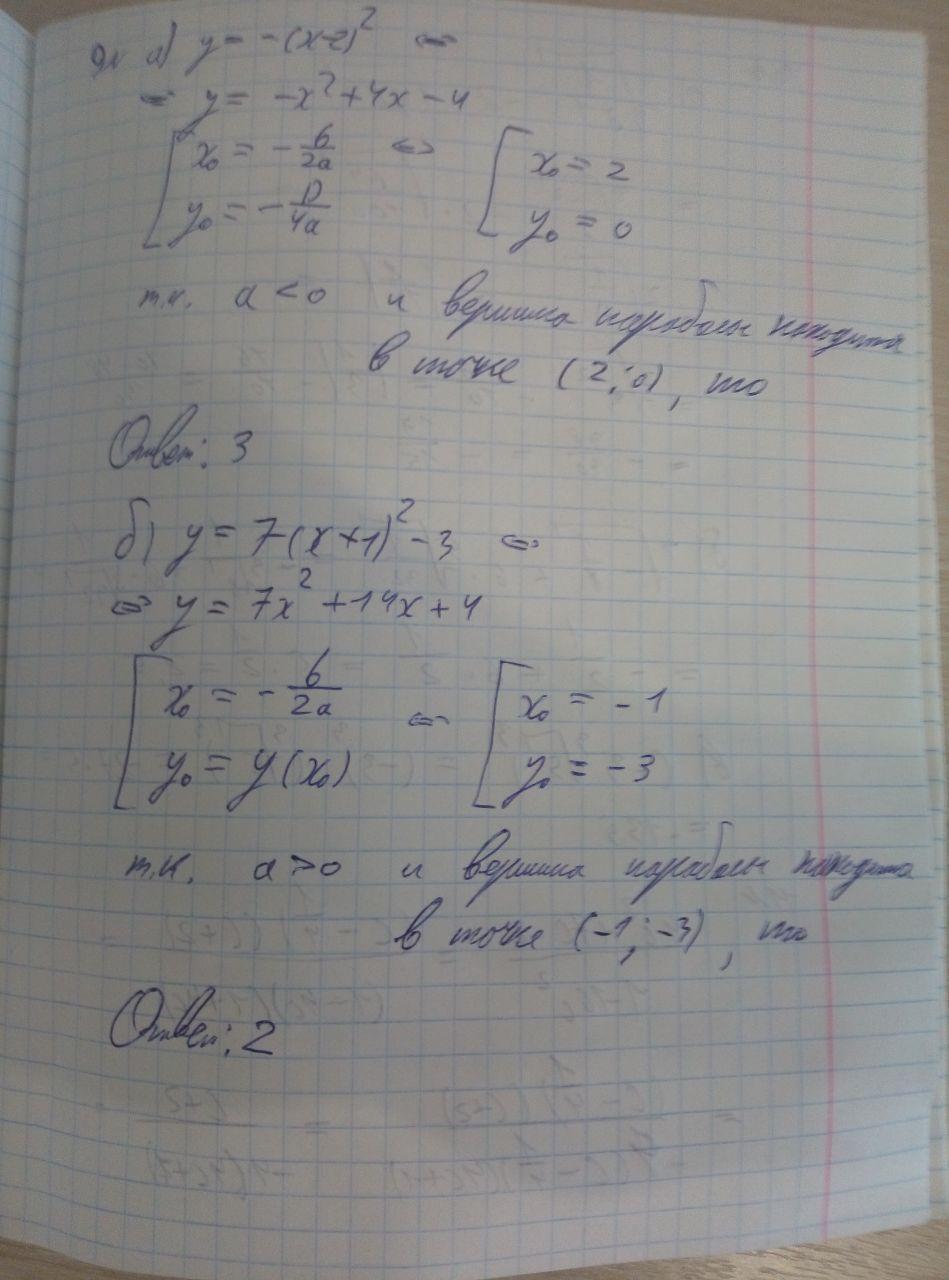 а) y = -(x-2)² ⇔
⇔ y = -x²+4x-4
[ x₀ = -b/2a ⇔ [ x₀ = 2
y₀ = -D/4a y₀ = 0
т.к. a < 0 и вершина параболы находится
в точке (2;0), то
Ответ: 3
б) y = 7(x+1)²-3 ⇔
⇔ y = 7x²+14x+4
[ x₀ = -b/2a ⇔ [ x₀ = -1
y₀ = y(x₀) y₀ = -3
т.к. a>0 и вершина параболы находится
в точке (-1;-3), то
Ответ: 2